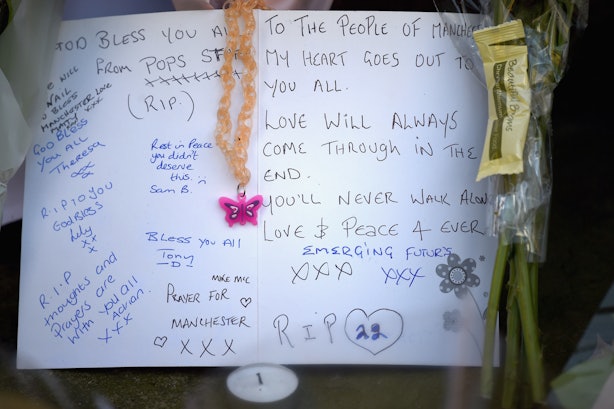 GOD BLESS YOU A
FROM POPS ST
(R.I.P.)
E WILL
NAIL
U BLESS
MANCHESTER LOVE
MATTY XXX
GOD BLESS
YOU ALL
Theresa
XX
R.I.P TO YOU
GOD BLESS
Lily
XX
X
R.I.P
thoughts and
Prayers are
with you all
Adrian
XXX
Rest in Peace
you didn't
deserve
this. :(
Sam B.
BLESS YOU ALL
TONY
-D-
MIKE MC
PRAYER FOR ♡
♡ MANCHESTER
X X X
TO THE PEOPLE OF MANCHE
MY HEART GOES OUT TO
YOU ALL.
LOVE WILL ALWAYS
COME THROUGH IN THE
END.
YOU'LL NEVER WALK ALON
LOVE & PEACE 4 EVER
EMERGING FUTURS
XXX XXX
R I P 22
Flower Food
1